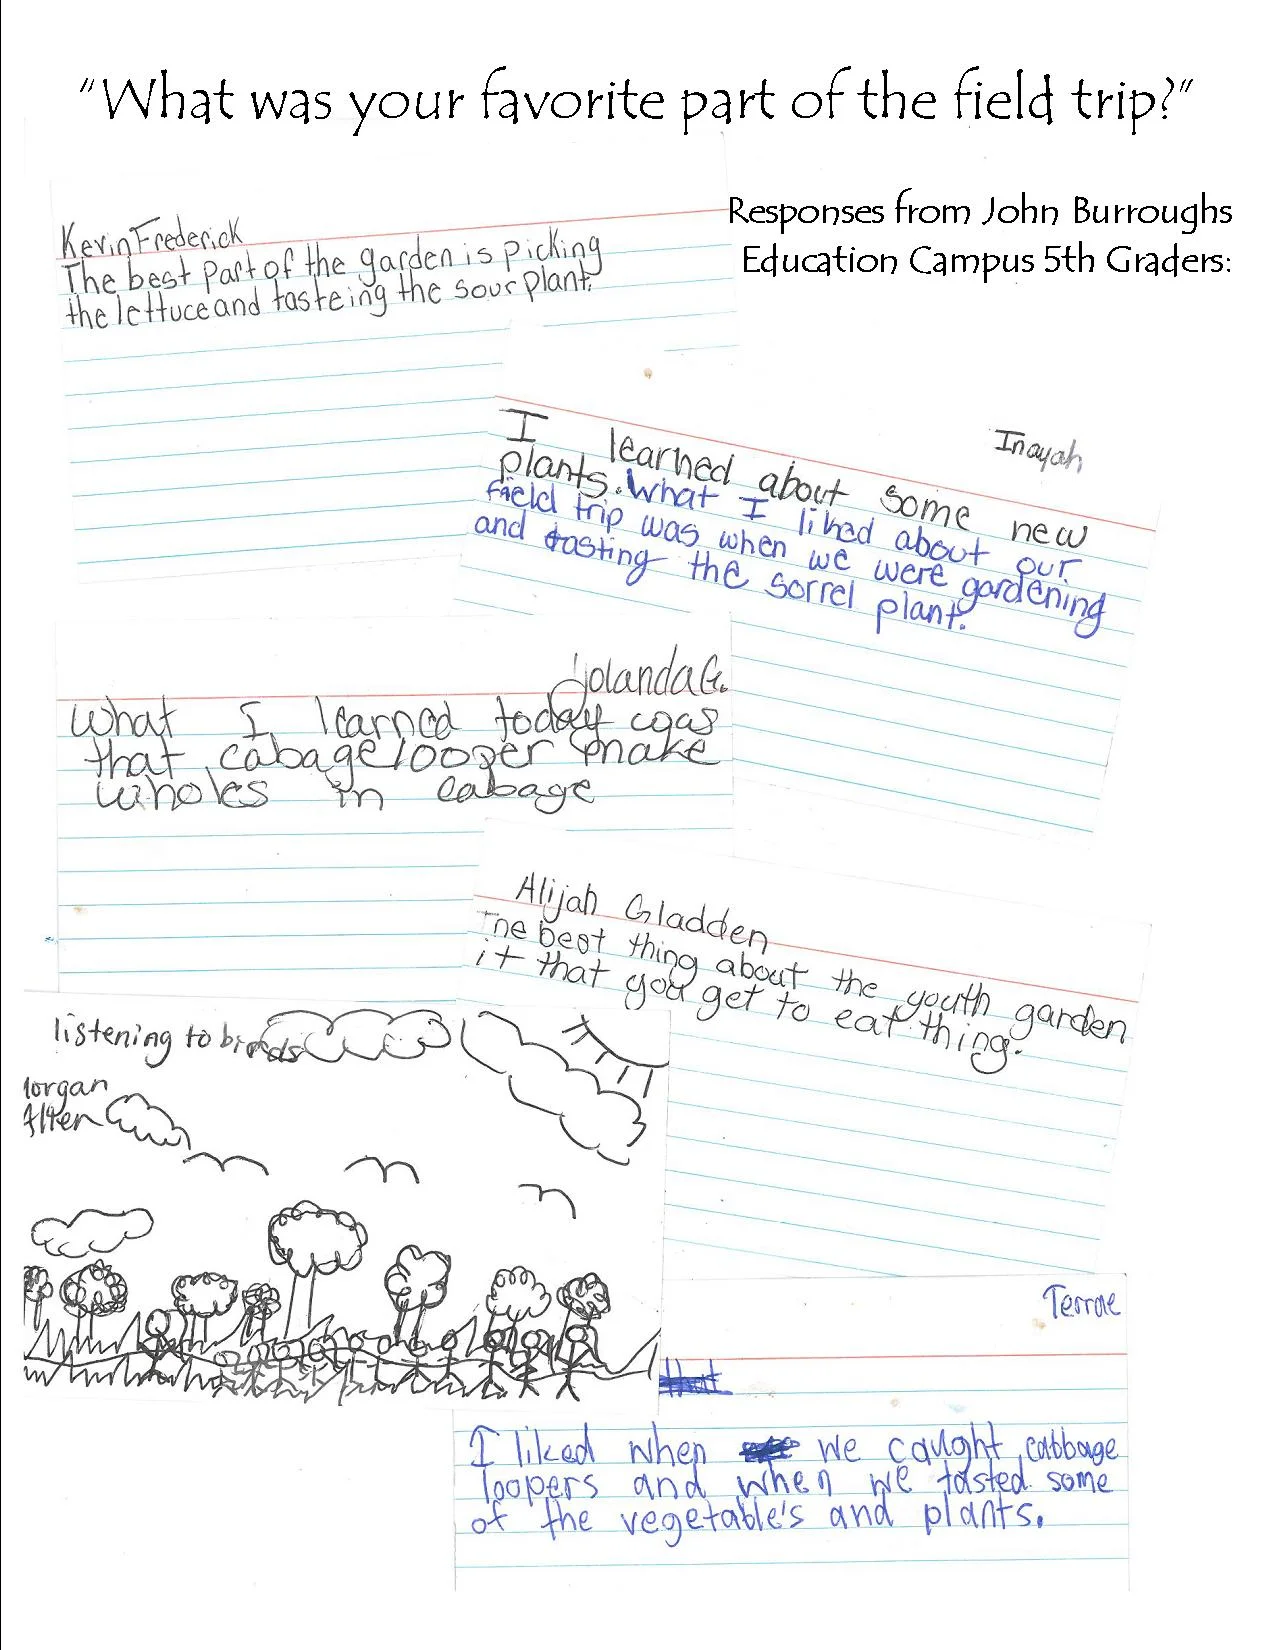 "What was your favorite part of the field trip?"
Responses from John Burroughs
Education Campus 5th Graders:
Kevin Frederick
The best part of the garden is picking
the lettuce and tasteing the sour plant.
Inayah
I learned about some new
plants. What I liked about our
field trip was when we were gardening
and tasting the sorrel plant.
Yolanda G.
What I learned today was
that cabage looper make
wholes in cabage
Alijah Gladden
The best thing about the youth garden
it that you get to eat thing.
listening to birds
lorgan
Terrae
that
I liked when we caught cabbage
loopers and when we tasted some
of the vegetable's and plants.